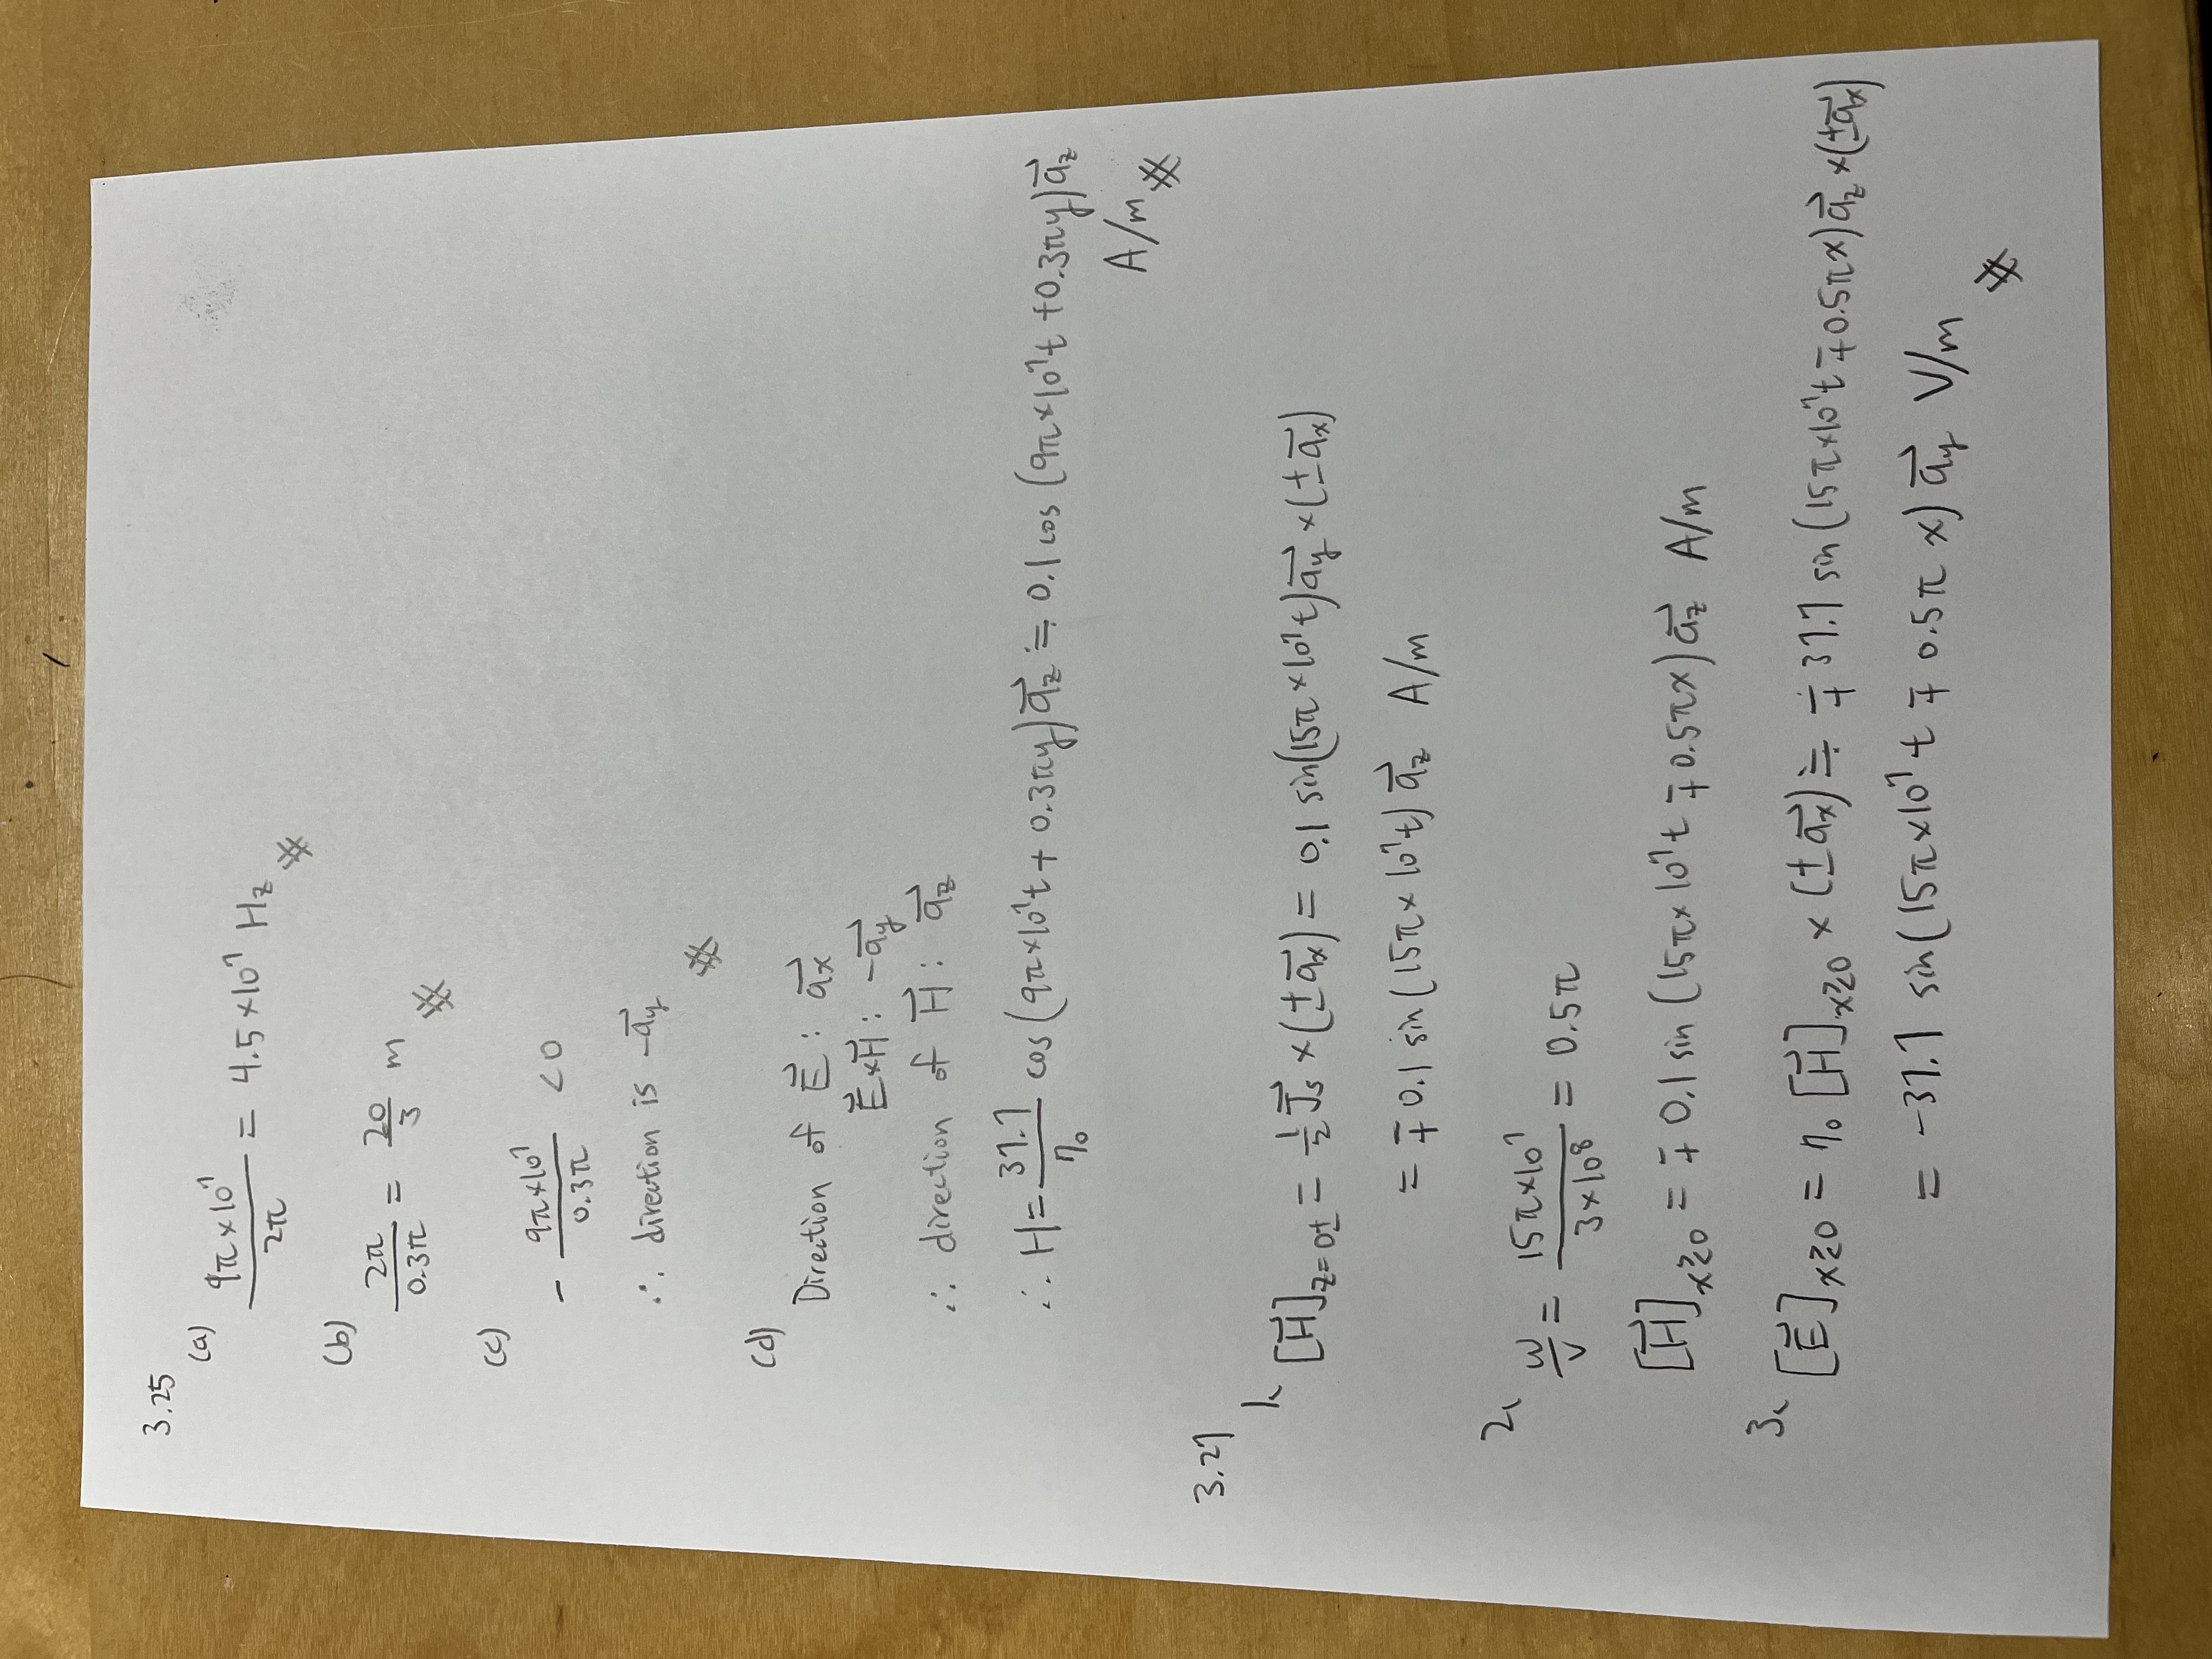 3.25
(a)
9π×10⁷ / 2π = 4.5×10⁷ Hz #
(b)
2π / 0.3π = 20/3 m #
(c)
- 9π×10⁷ / 0.3π < 0
∴ direction is -a⃗y #
(d)
Direction of E⃗ : a⃗x
E⃗×H⃗ : -a⃗y
∴ direction of H⃗ : a⃗z
∴ H = 37.7/η₀ cos(9π×10⁷t + 0.3πy) a⃗z ≒ 0.1 cos(9π×10⁷t + 0.3πy) a⃗z
A/m #
3.27
1. [H⃗]z=0± = ½ J⃗s × (±a⃗x) = 0.1 sin(15π×10⁷t) a⃗y × (±a⃗x)
= ∓0.1 sin(15π×10⁷t) a⃗z A/m
2. w/v = 15π×10⁷ / 3×10⁸ = 0.5π
[H⃗]x≷0 = ∓0.1 sin(15π×10⁷t ∓ 0.5πx) a⃗z A/m
3. [E⃗]x≷0 = η₀ [H⃗]x≷0 × (±a⃗x) ≒ ∓37.7 sin(15π×10⁷t ∓ 0.5πx) a⃗z × (±a⃗x)
= -37.7 sin(15π×10⁷t ∓ 0.5πx) a⃗y V/m #